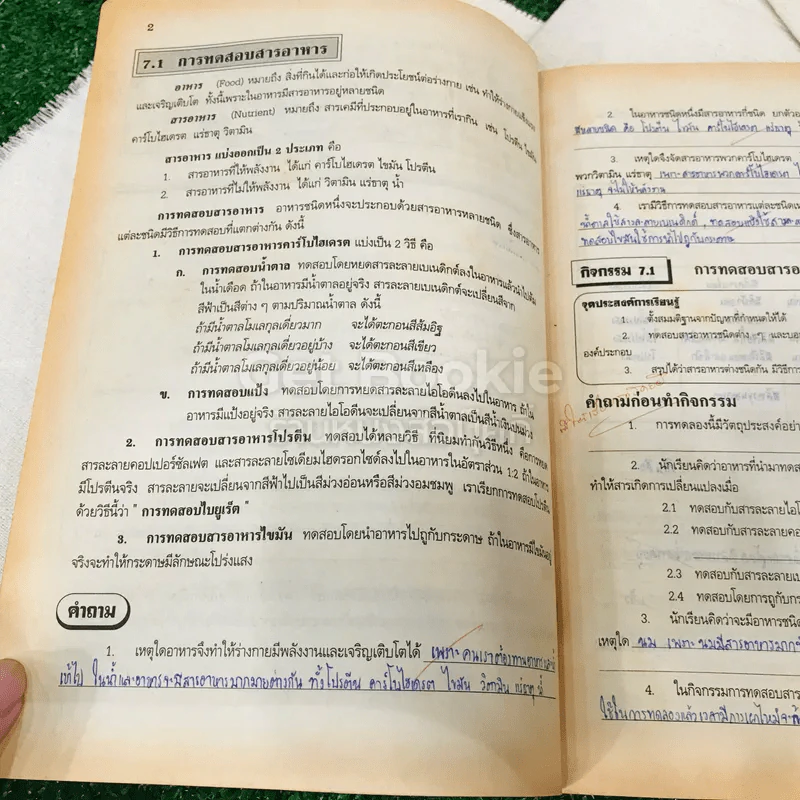 2
7.1 การทดสอบสารอาหาร
อาหาร (Food) หมายถึง สิ่งที่กินได้และก่อให้เกิดประโยชน์ต่อร่างกาย เช่น ทำให้ร่างกายแข็งแรง
และเจริญเติบโต ทั้งนี้เพราะในอาหารมีสารอาหารอยู่หลายชนิด
สารอาหาร (Nutrient) หมายถึง สารเคมีที่ประกอบอยู่ในอาหารที่เรากิน เช่น โปรตีน ไขมัน
คาร์โบไฮเดรต แร่ธาตุ วิตามิน
สารอาหาร แบ่งออกเป็น 2 ประเภท คือ
1. สารอาหารที่ให้พลังงาน ได้แก่ คาร์โบไฮเดรต ไขมัน โปรตีน
2. สารอาหารที่ไม่ให้พลังงาน ได้แก่ วิตามิน แร่ธาตุ น้ำ
การทดสอบสารอาหาร อาหารชนิดหนึ่งจะประกอบด้วยสารอาหารหลายชนิด ซึ่งสารอาหาร
แต่ละชนิดมีวิธีการทดสอบที่แตกต่างกัน ดังนี้
1. การทดสอบสารอาหารคาร์โบไฮเดรต แบ่งเป็น 2 วิธี คือ
ก. การทดสอบน้ำตาล ทดสอบโดยหยดสารละลายเบเนดิกต์ลงในอาหารแล้วนำไปต้ม
ในน้ำเดือด ถ้าในอาหารมีน้ำตาลอยู่จริง สารละลายเบเนดิกต์จะเปลี่ยนสีจาก
สีฟ้าเป็นสีต่าง ๆ ตามปริมาณน้ำตาล ดังนี้
ถ้ามีน้ำตาลโมเลกุลเดี่ยวมาก จะได้ตะกอนสีส้มอิฐ
ถ้ามีน้ำตาลโมเลกุลเดี่ยวอยู่บ้าง จะได้ตะกอนสีเขียว
ถ้ามีน้ำตาลโมเลกุลเดี่ยวอยู่น้อย จะได้ตะกอนสีเหลือง
ข. การทดสอบแป้ง ทดสอบโดยการหยดสารละลายไอโอดีนลงไปในอาหาร ถ้าใน
อาหารมีแป้งอยู่จริง สารละลายไอโอดีนจะเปลี่ยนจากสีน้ำตาลเป็นสีน้ำเงินปนม่วง
2. การทดสอบสารอาหารโปรตีน ทดสอบได้หลายวิธี ที่นิยมทำกันวิธีหนึ่ง คือการหยด
สารละลายคอปเปอร์ซัลเฟต และสารละลายโซเดียมไฮดรอกไซด์ลงไปในอาหารในอัตราส่วน 1:2 ถ้าในอาหาร
มีโปรตีนจริง สารละลายจะเปลี่ยนจากสีฟ้าไปเป็นสีม่วงอ่อนหรือสีม่วงอมชมพู เราเรียกการทดสอบโปรตีน
ด้วยวิธีนี้ว่า " การทดสอบไบยูเร็ต "
3. การทดสอบสารอาหารไขมัน ทดสอบโดยนำอาหารไปถูกับกระดาษ ถ้าในอาหารมีไขมันอยู่
จริงจะทำให้กระดาษมีลักษณะโปร่งแสง
คำถาม
1. เหตุใดอาหารจึงทำให้ร่างกายมีพลังงานและเจริญเติบโตได้ เพราะ คนเราต้องทานอาหาร
เข้าไป ในน้ำและอาหารจะมีสารอาหารมากมายต่างกัน ทั้งโปรตีน คาร์โบไฮเดรต ไขมัน วิตามิน แร่ธาตุ น้ำ
Get Bookie
2. ในอาหารชนิดหนึ่งมีสารอาหารกี่ชนิด ยกตัวอ
หลายชนิด คือ โปรตีน ไขมัน คาร์โบไฮเดรต แร่ธาตุ
3. เหตุใดจึงจัดสารอาหารพวกคาร์โบไฮเดรต
พวกวิตามิน แร่ธาตุ เพราะสารอาหารพวกคาร์โบไฮเดรต
แร่ธาตุ จะไม่ให้พลังงาน
4. เรามีวิธีการทดสอบสารอาหารแต่ละชนิดเห
น้ำตาลใช้สารละลายเบเนดิกต์, ทดสอบแป้งใช้สาร
ทดสอบไขมันใช้การนำไปถูกับกระดาษ
กิจกรรม 7.1 การทดสอบสารอา
จุดประสงค์การเรียนรู้
1. ตั้งสมมติฐานจากปัญหาที่กำหนดให้ได้
2. ทดสอบสารอาหารชนิดต่าง ๆ และบอ
องค์ประกอบ
3. สรุปได้ว่าสารอาหารต่างชนิดกัน มีวิธีการ
คำถามก่อนทำกิจกรรม
1. การทดลองนี้มีวัตถุประสงค์อย่า
2. นักเรียนคิดว่าอาหารที่นำมาทดส
ทำให้สารเกิดการเปลี่ยนแปลงเมื่อ
2.1 ทดสอบกับสารละลายไอโ
2.2 ทดสอบกับสารละลายคอ
2.3 ทดสอบกับสารละลายเบ
2.4 ทดสอบโดยการถูกับกร
3. นักเรียนคิดว่าจะมีอาหารชนิด
เหตุใด นม เพราะ นมมีสารอาหารมากก
4. ในกิจกรรมการทดสอบสาร
ใช้ในการทดลองแล้วเวลามีการเผาไหม้